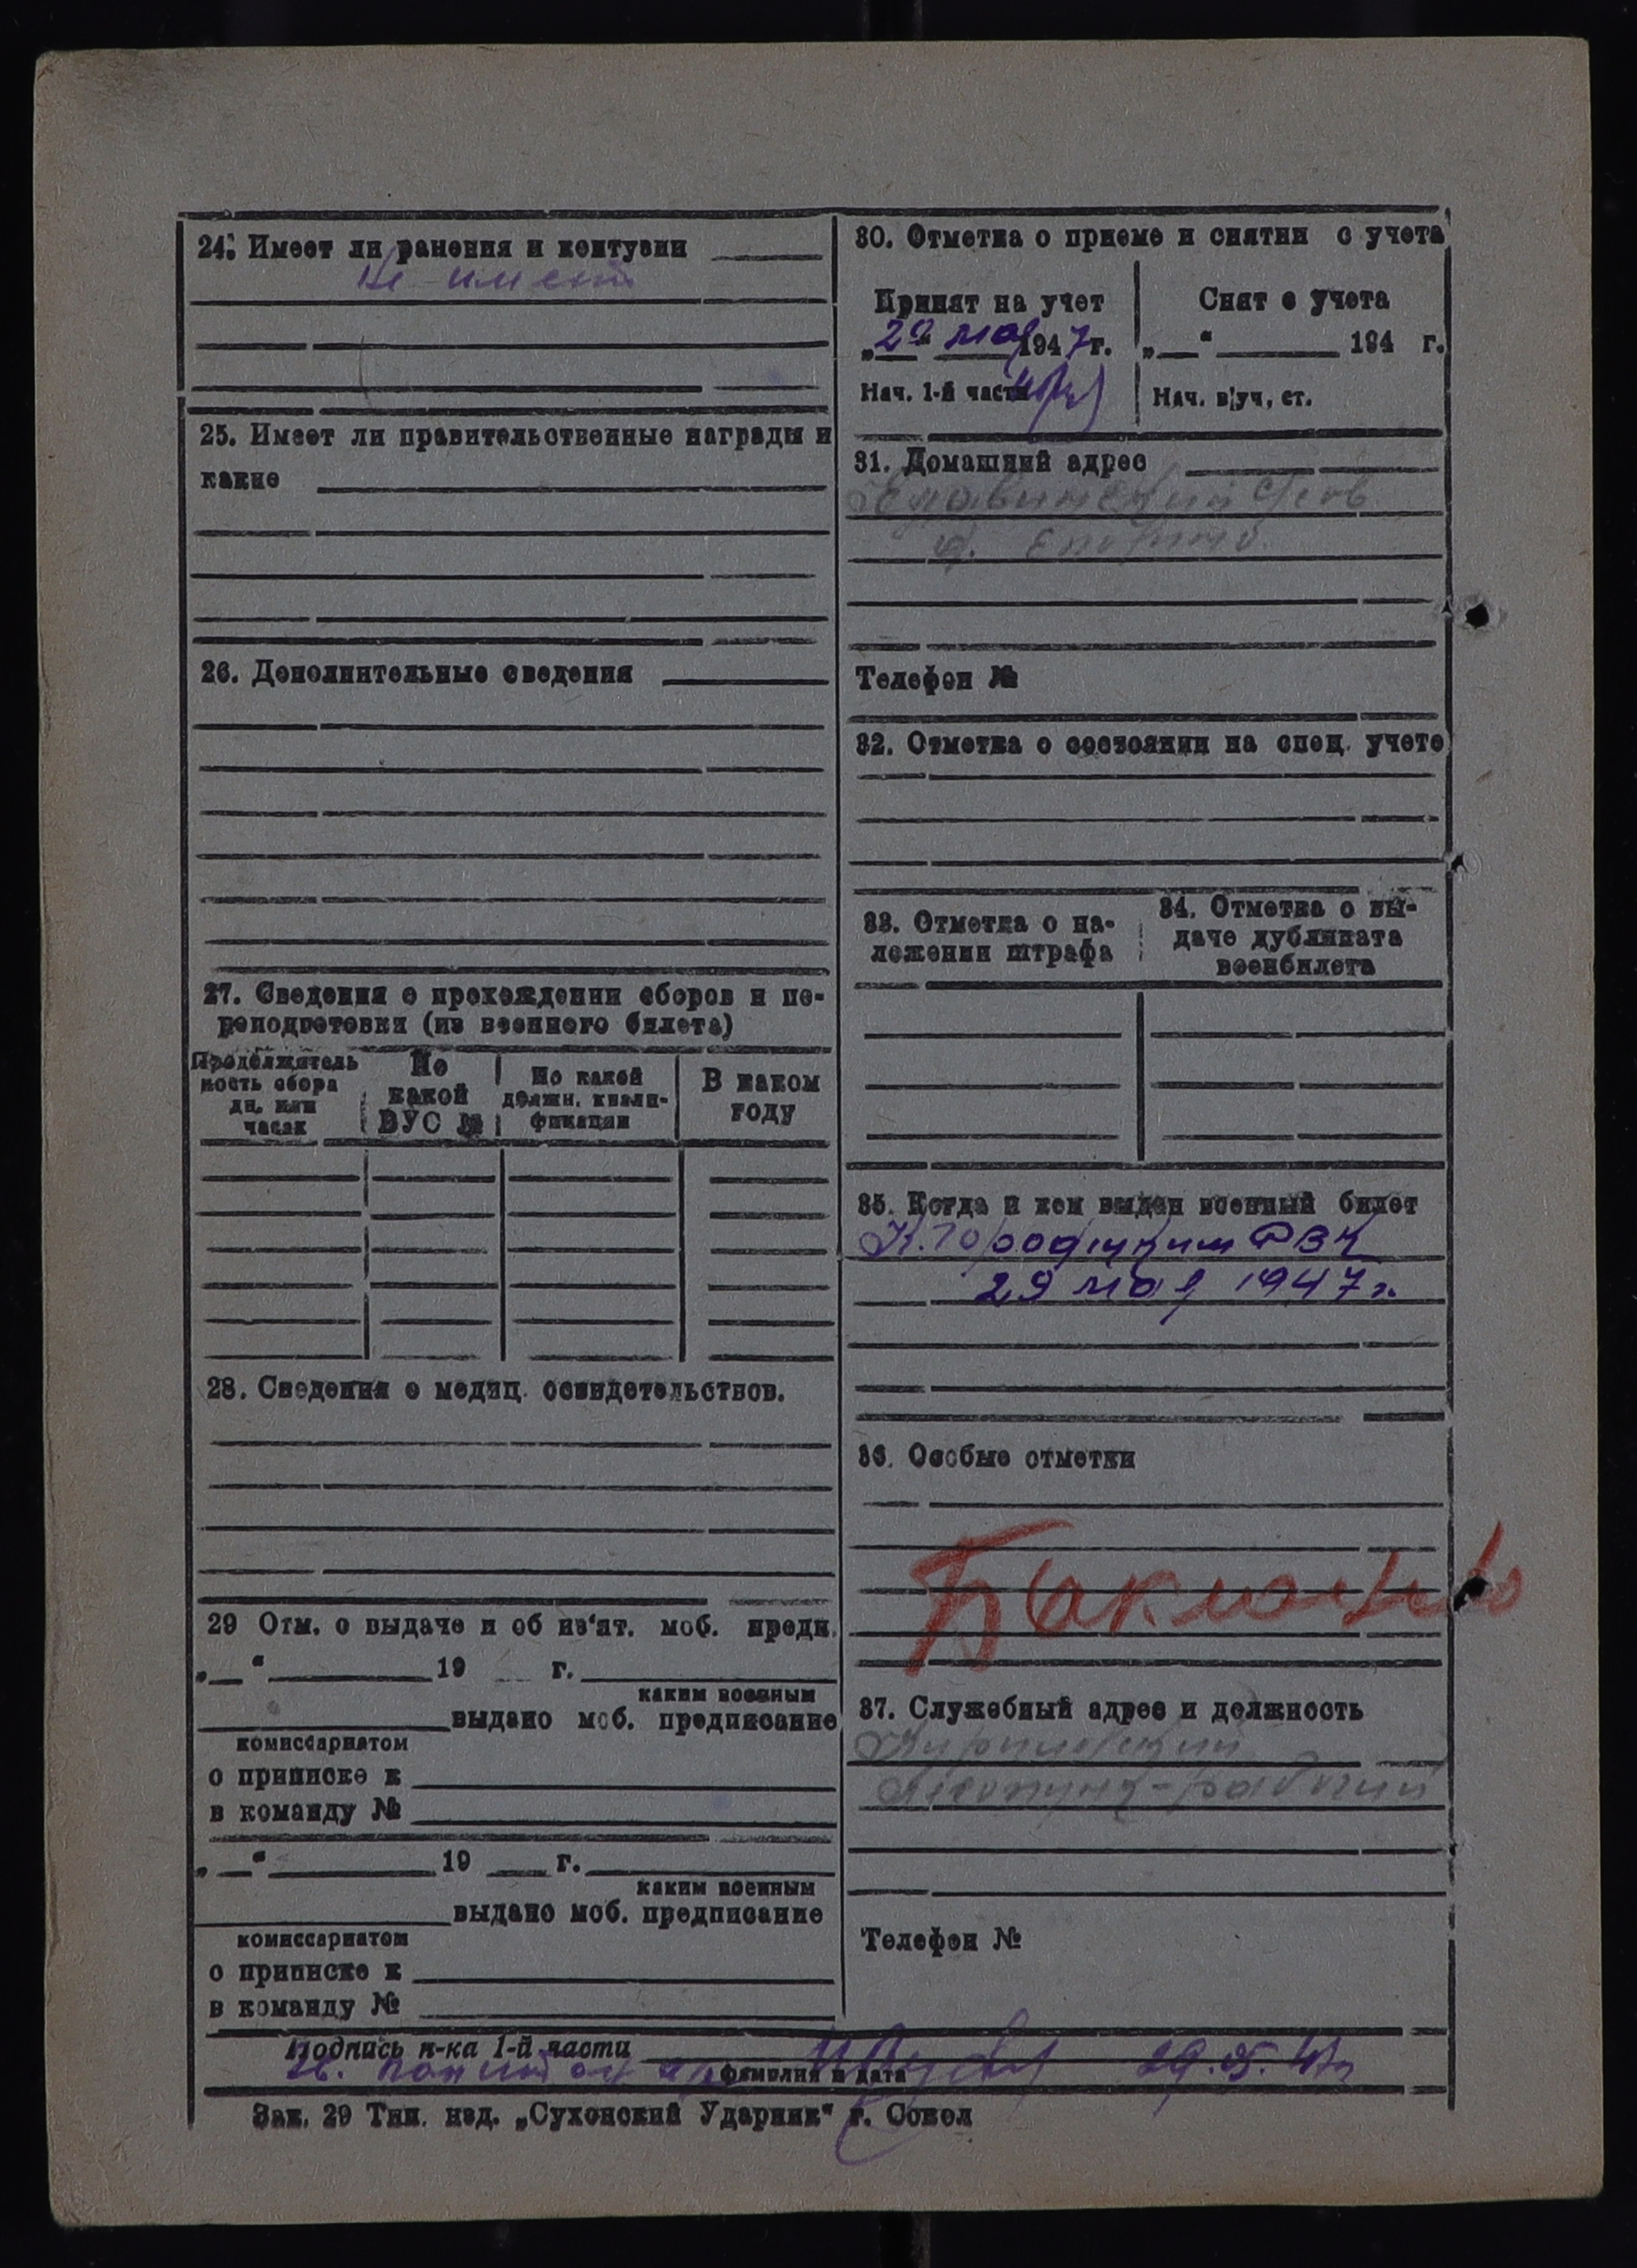 24. Имеет ли ранения и контузии
не имеет
25. Имеет ли правительственные награды и
какие
26. Дополнительные сведения
27. Сведения о прохождении сборов и пе-
реподготовки (из военного билета)
Продолжитель
ность сбора
дн. или
часах
По
какой
ВУС №
По какой
должн. квали-
фикации
В каком
году
28. Сведения о медиц. освидетельствов.
29 Отм. о выдаче и об из'ят. моб. предп.
„ “ 19 г.
каким военным
выдано моб. предписание
комиссариатом
о приписке к
в команду №
„ “ 19 г.
каким военным
выдано моб. предписание
комиссариатом
о приписке к
в команду №
30. Отметка о приеме и снятии с учета
Принят на учет
„29“ мая 1947 г.
Нач. 1-й части
Снят с учета
„ “ 194 г.
Нач. в|уч. ст.
31. Домашний адрес
Телефон №
32. Отметка о состоянии на спец. учете
33. Отметка о на-
ложении штрафа
34. Отметка о вы-
даче дубликата
военбилета
35. Когда и кем выдан военный билет
К.Городецким РВК
29 мая 1947 г.
36. Особые отметки
37. Служебный адрес и должность
лесопункт - рабочий
Телефон №
Подпись н-ка 1-й части
29.05.47г
фамилия и дата
Зак. 29 Тип. изд. „Сухонский Ударник“ г. Сокол